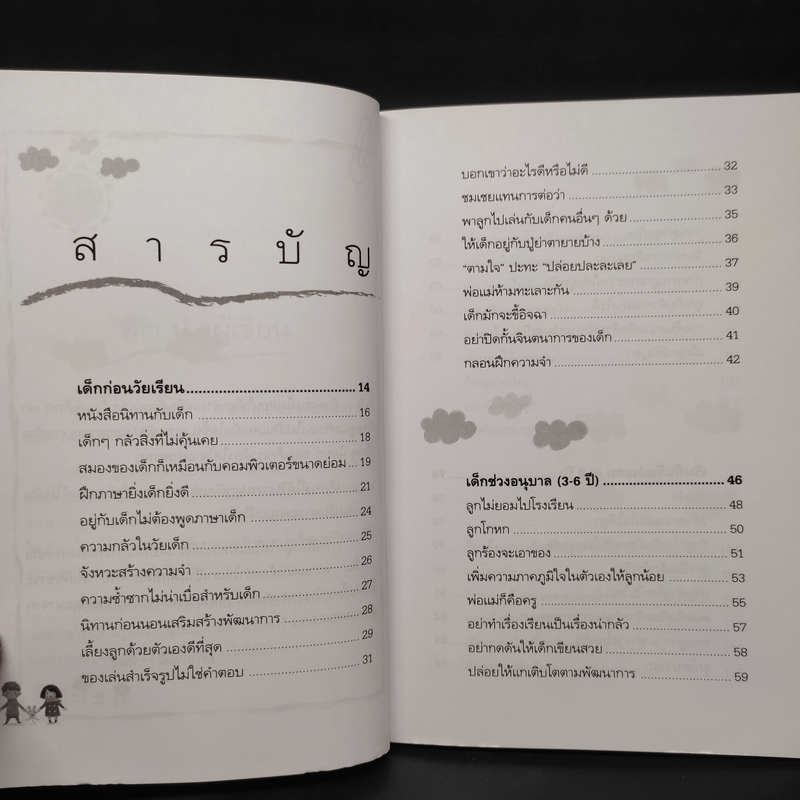 สารบัญ
เด็กก่อนวัยเรียน ........................................ 14
หนังสือนิทานกับเด็ก ........................................ 16
เด็กๆ กลัวสิ่งที่ไม่คุ้นเคย ........................................ 18
สมองของเด็กก็เหมือนกับคอมพิวเตอร์ขนาดย่อม ... 19
ฝึกภาษายิ่งเด็กยิ่งดี ........................................ 21
อยู่กับเด็กไม่ต้องพูดภาษาเด็ก ........................................ 24
ความกลัวในวัยเด็ก ........................................ 25
จังหวะสร้างความจำ ........................................ 26
ความซ้ำซากไม่น่าเบื่อสำหรับเด็ก ........................................ 27
นิทานก่อนนอนเสริมสร้างพัฒนาการ ........................................ 28
เลี้ยงลูกด้วยตัวเองดีที่สุด ........................................ 29
ของเล่นสำเร็จรูปไม่ใช่คำตอบ ........................................ 31
บอกเขาว่าอะไรดีหรือไม่ดี ........................................ 32
ชมเชยแทนการต่อว่า ........................................ 33
พาลูกไปเล่นกับเด็กคนอื่นๆ ด้วย ........................................ 35
ให้เด็กอยู่กับปู่ย่าตายายบ้าง ........................................ 36
"ตามใจ" ปะทะ "ปล่อยปละละเลย" ........................................ 37
พ่อแม่ห้ามทะเลาะกัน ........................................ 39
เด็กมักจะขี้อิจฉา ........................................ 40
อย่าปิดกั้นจินตนาการของเด็ก ........................................ 41
กลอนฝึกความจำ ........................................ 42
เด็กช่วงอนุบาล (3-6 ปี) ........................................ 46
ลูกไม่ยอมไปโรงเรียน ........................................ 48
ลูกโกหก ........................................ 50
ลูกร้องจะเอาของ ........................................ 51
เพิ่มความภาคภูมิใจในตัวเองให้ลูกน้อย ........................................ 53
พ่อแม่ก็คือครู ........................................ 55
อย่าทำเรื่องเรียนเป็นเรื่องน่ากลัว ........................................ 57
อย่ากดดันให้เด็กเขียนสวย ........................................ 58
ปล่อยให้แกเติบโตตามพัฒนาการ ........................................ 59